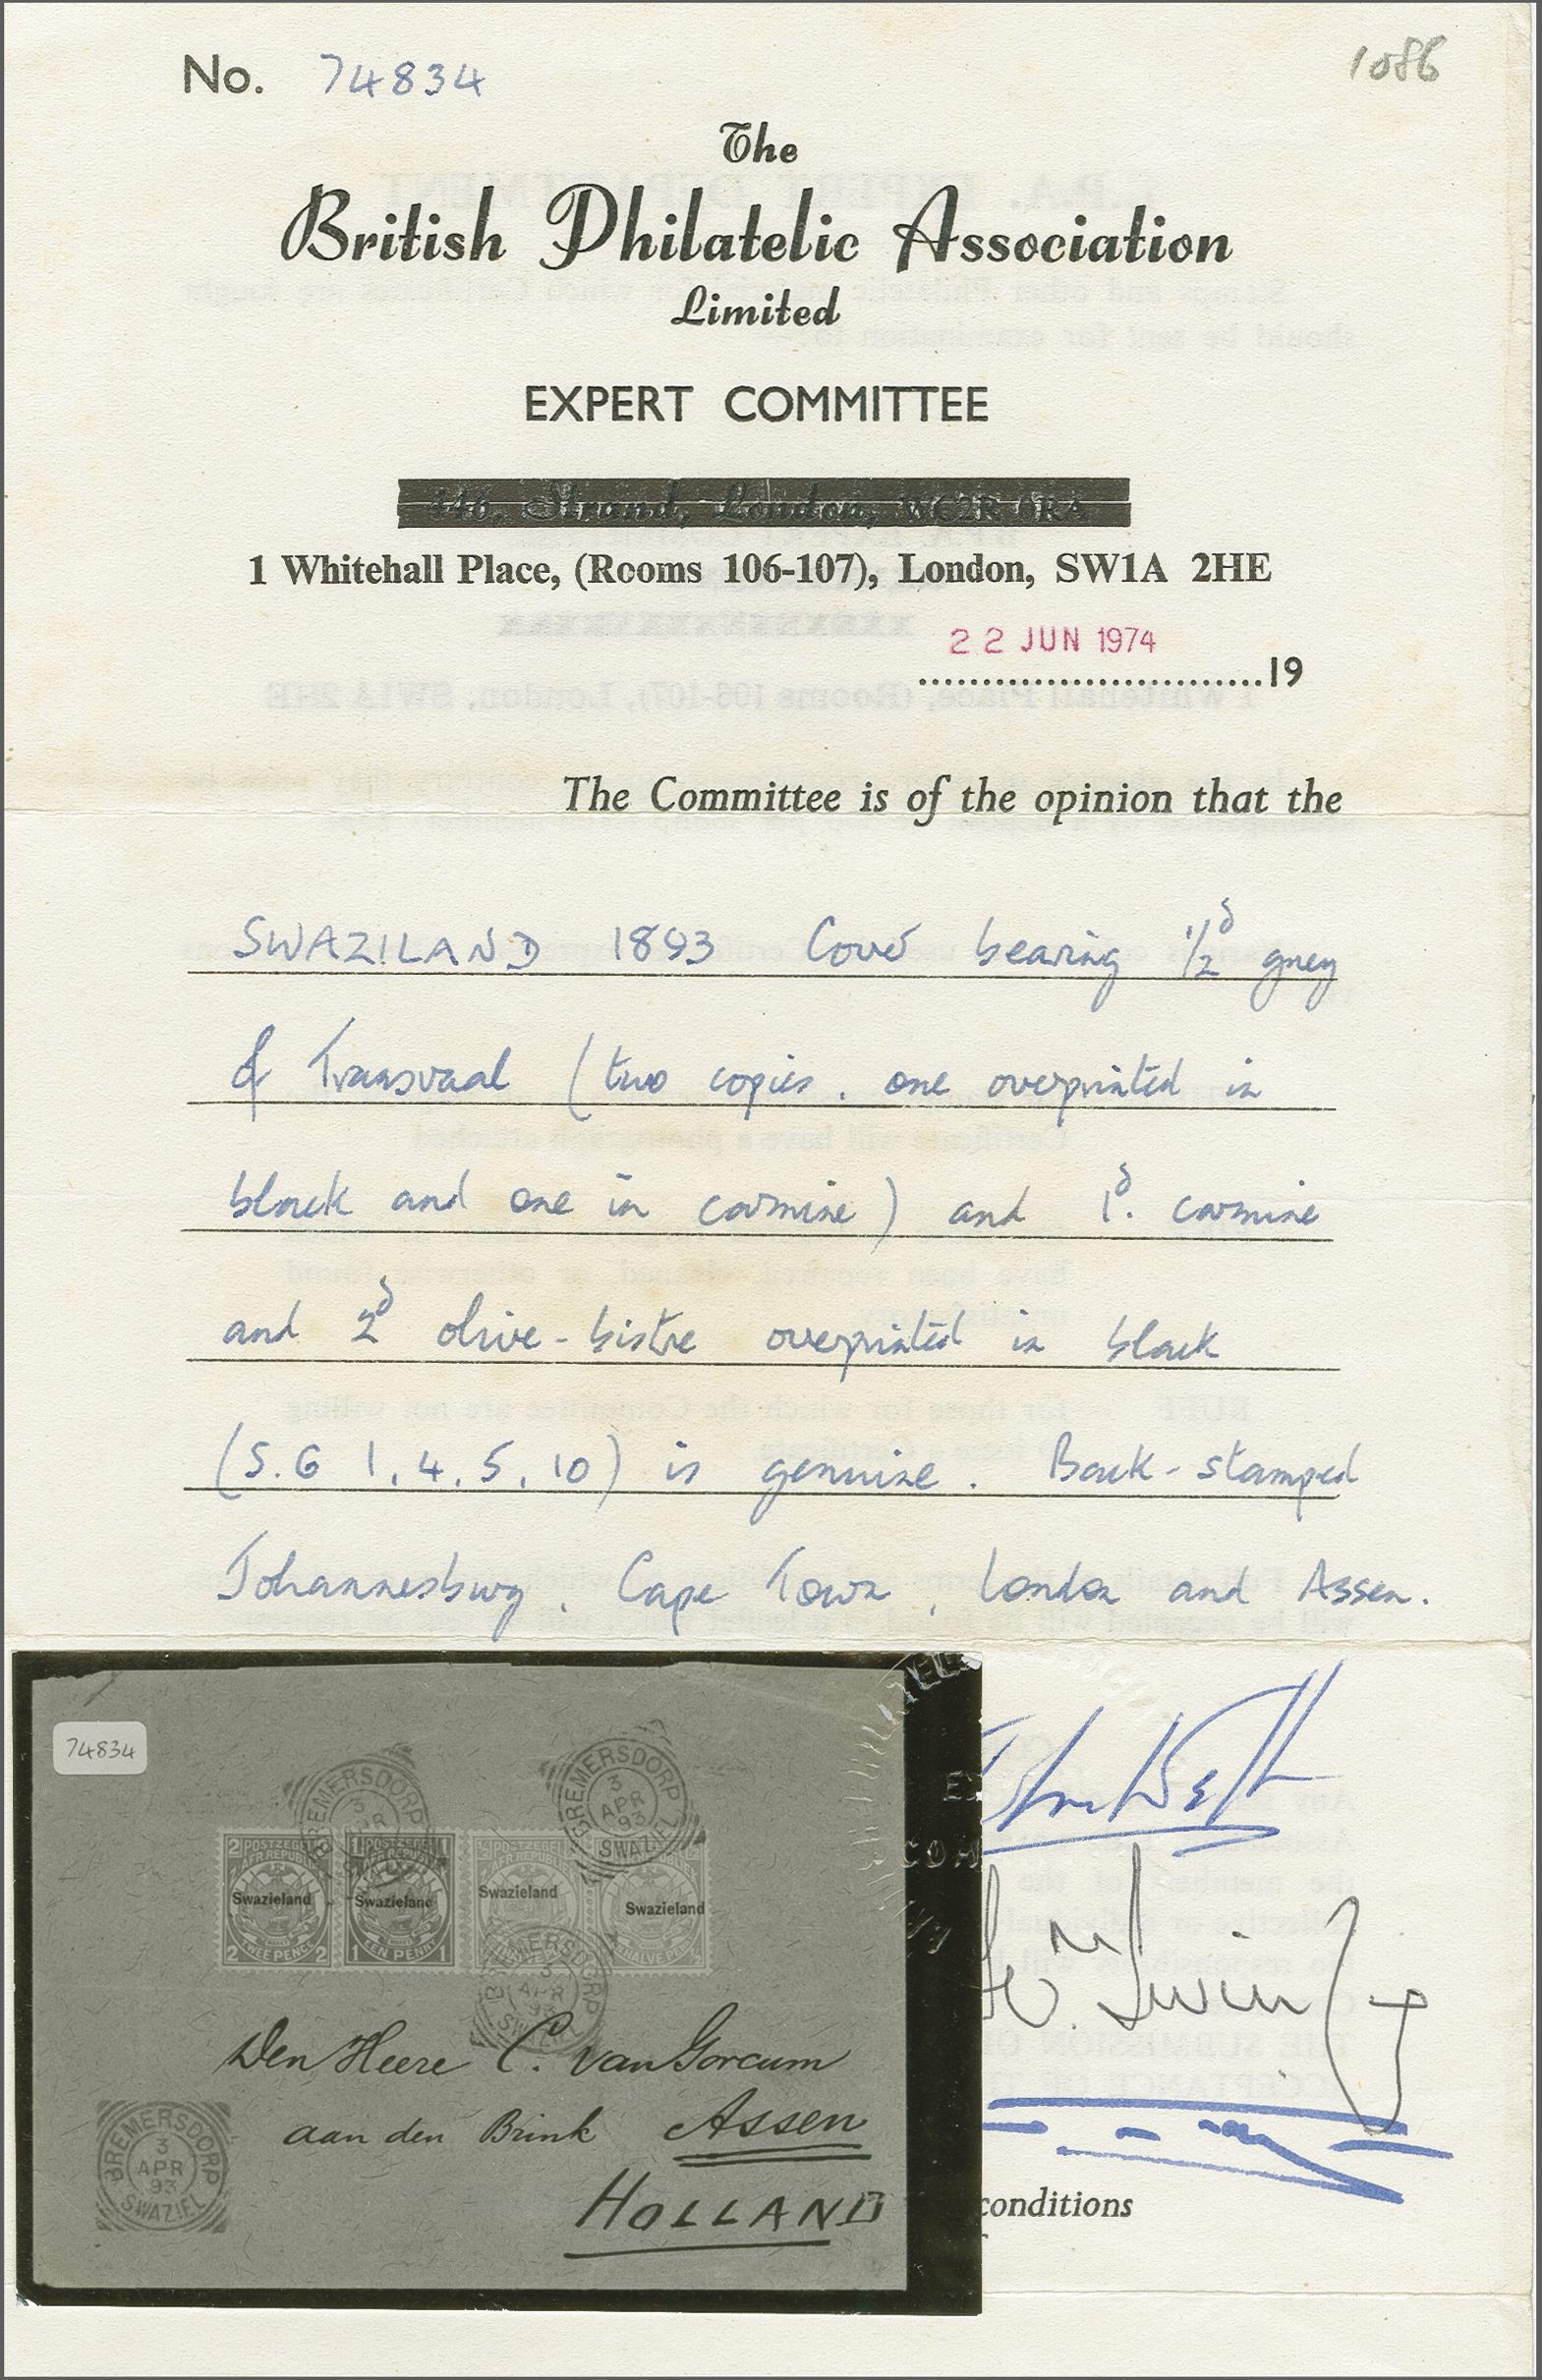 No. 74834
1086
The
British Philatelic Association
Limited
EXPERT COMMITTEE
446, Strand, London, WC2R 0RA
1 Whitehall Place, (Rooms 106-107), London, SW1A 2HE
22 JUN 1974
19
The Committee is of the opinion that the
SWAZILAND 1893 Cover bearing ½d grey
of Transvaal (two copies, one overprinted in
black and one in carmine) and 1d. carmine
and 2d olive-bistre overprinted in black
(S.G 1, 4, 5, 10) is genuine. Back-stamped
Johannesburg, Cape Town, London and Assen.
74834
BREMERSDORP
3 APR 93
SWAZIEL
BREMERSDORP
3
APR
93
SWAZIEL
2 POSTZEGEL
AFR. REPUBLIEK
Swazieland
2 TWEE PENCE 2
1 POSTZEGEL 1
AFR. REPUBLIEK
Swazieland
1 EEN PENNY 1
Swazieland
Swazieland
HALVE PENNY
BREMERSDORP
3
APR
93
SWAZIEL
Den Heere C. van Gorcum
aan den Brink Assen
HOLLAND
BREMERSDORP
3
APR
93
SWAZIEL
conditions